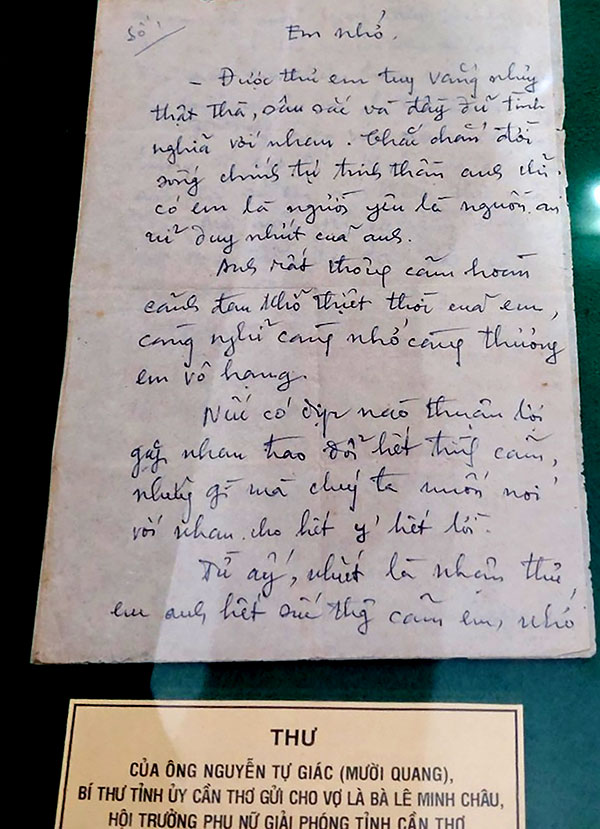 Số 1
Em nhớ.
- Được thư em tuy vắng nhưng
thật thà, sâu sắc và đầy đủ tình
nghĩa với nhau. Chắc chắn đời
sống chính trị tinh thần anh chỉ
có em là người yêu là nguồn an
ủi duy nhứt của anh.
Anh rất thông cảm hoàn
cảnh đau khổ thiệt thòi của em,
càng nghĩ càng nhớ càng thương
em vô hạng.
Nếu có dịp nào thuận lợi
gặp nhau trao đổi hết tình cảm,
những gì mà chúng ta muốn nói
với nhau cho hết ý hết lời.
Từ ấy, nhứt là nhận thư
em anh hết sức thông cảm em, nhớ
THƯ
CỦA ÔNG NGUYỄN TỰ GIÁC (MƯỜI QUANG),
BÍ THƯ TỈNH ỦY CẦN THƠ GỬI CHO VỢ LÀ BÀ LÊ MINH CHÂU,
HỘI TRƯỞNG PHỤ NỮ GIẢI PHÓNG TỈNH CẦN THƠ